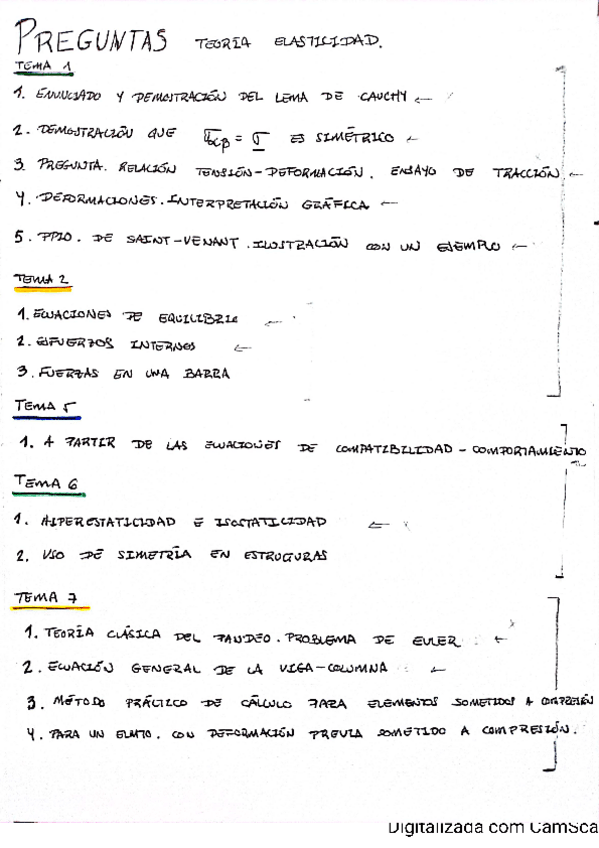 PREGUNTAS TEORÍA ELASTICIDAD.
TEMA 1
1. ENUNCIADO Y DEMOSTRACIÓN DEL LEMA DE CAUCHY ←
2. DEMOSTRACIÓN QUE = σ ES SIMÉTRICO ←
3. PREGUNTA. RELACIÓN TENSIÓN-DEFORMACIÓN. ENSAYO DE TRACCIÓN ←
4. DEFORMACIONES. INTERPRETACIÓN GRÁFICA ←
5. PPIO. DE SAINT-VENANT. ILUSTRACIÓN CON UN EJEMPLO ←
TEMA 2
1. ECUACIONES DE EQUILIBRIO ←
2. ESFUERZOS INTERNOS ←
3. FUERZAS EN UNA BARRA
TEMA 5
1. A PARTIR DE LAS ECUACIONES DE COMPATIBILIDAD - COMPORTAMIENTO
TEMA 6
1. HIPERESTATICIDAD E ISOSTATICIDAD ←
2. USO DE SIMETRÍA EN ESTRUCTURAS
TEMA 7
1. TEORÍA CLÁSICA DEL PANDEO. PROBLEMA DE EULER ←
2. ECUACIÓN GENERAL DE LA VIGA-COLUMNA ←
3. MÉTODO PRÁCTICO DE CÁLCULO PARA ELEMENTOS SOMETIDOS A COMPRESIÓN
4. PARA UN ELMTO. CON DEFORMACIÓN PREVIA SOMETIDO A COMPRESIÓN.
Digitalizada com CamSca